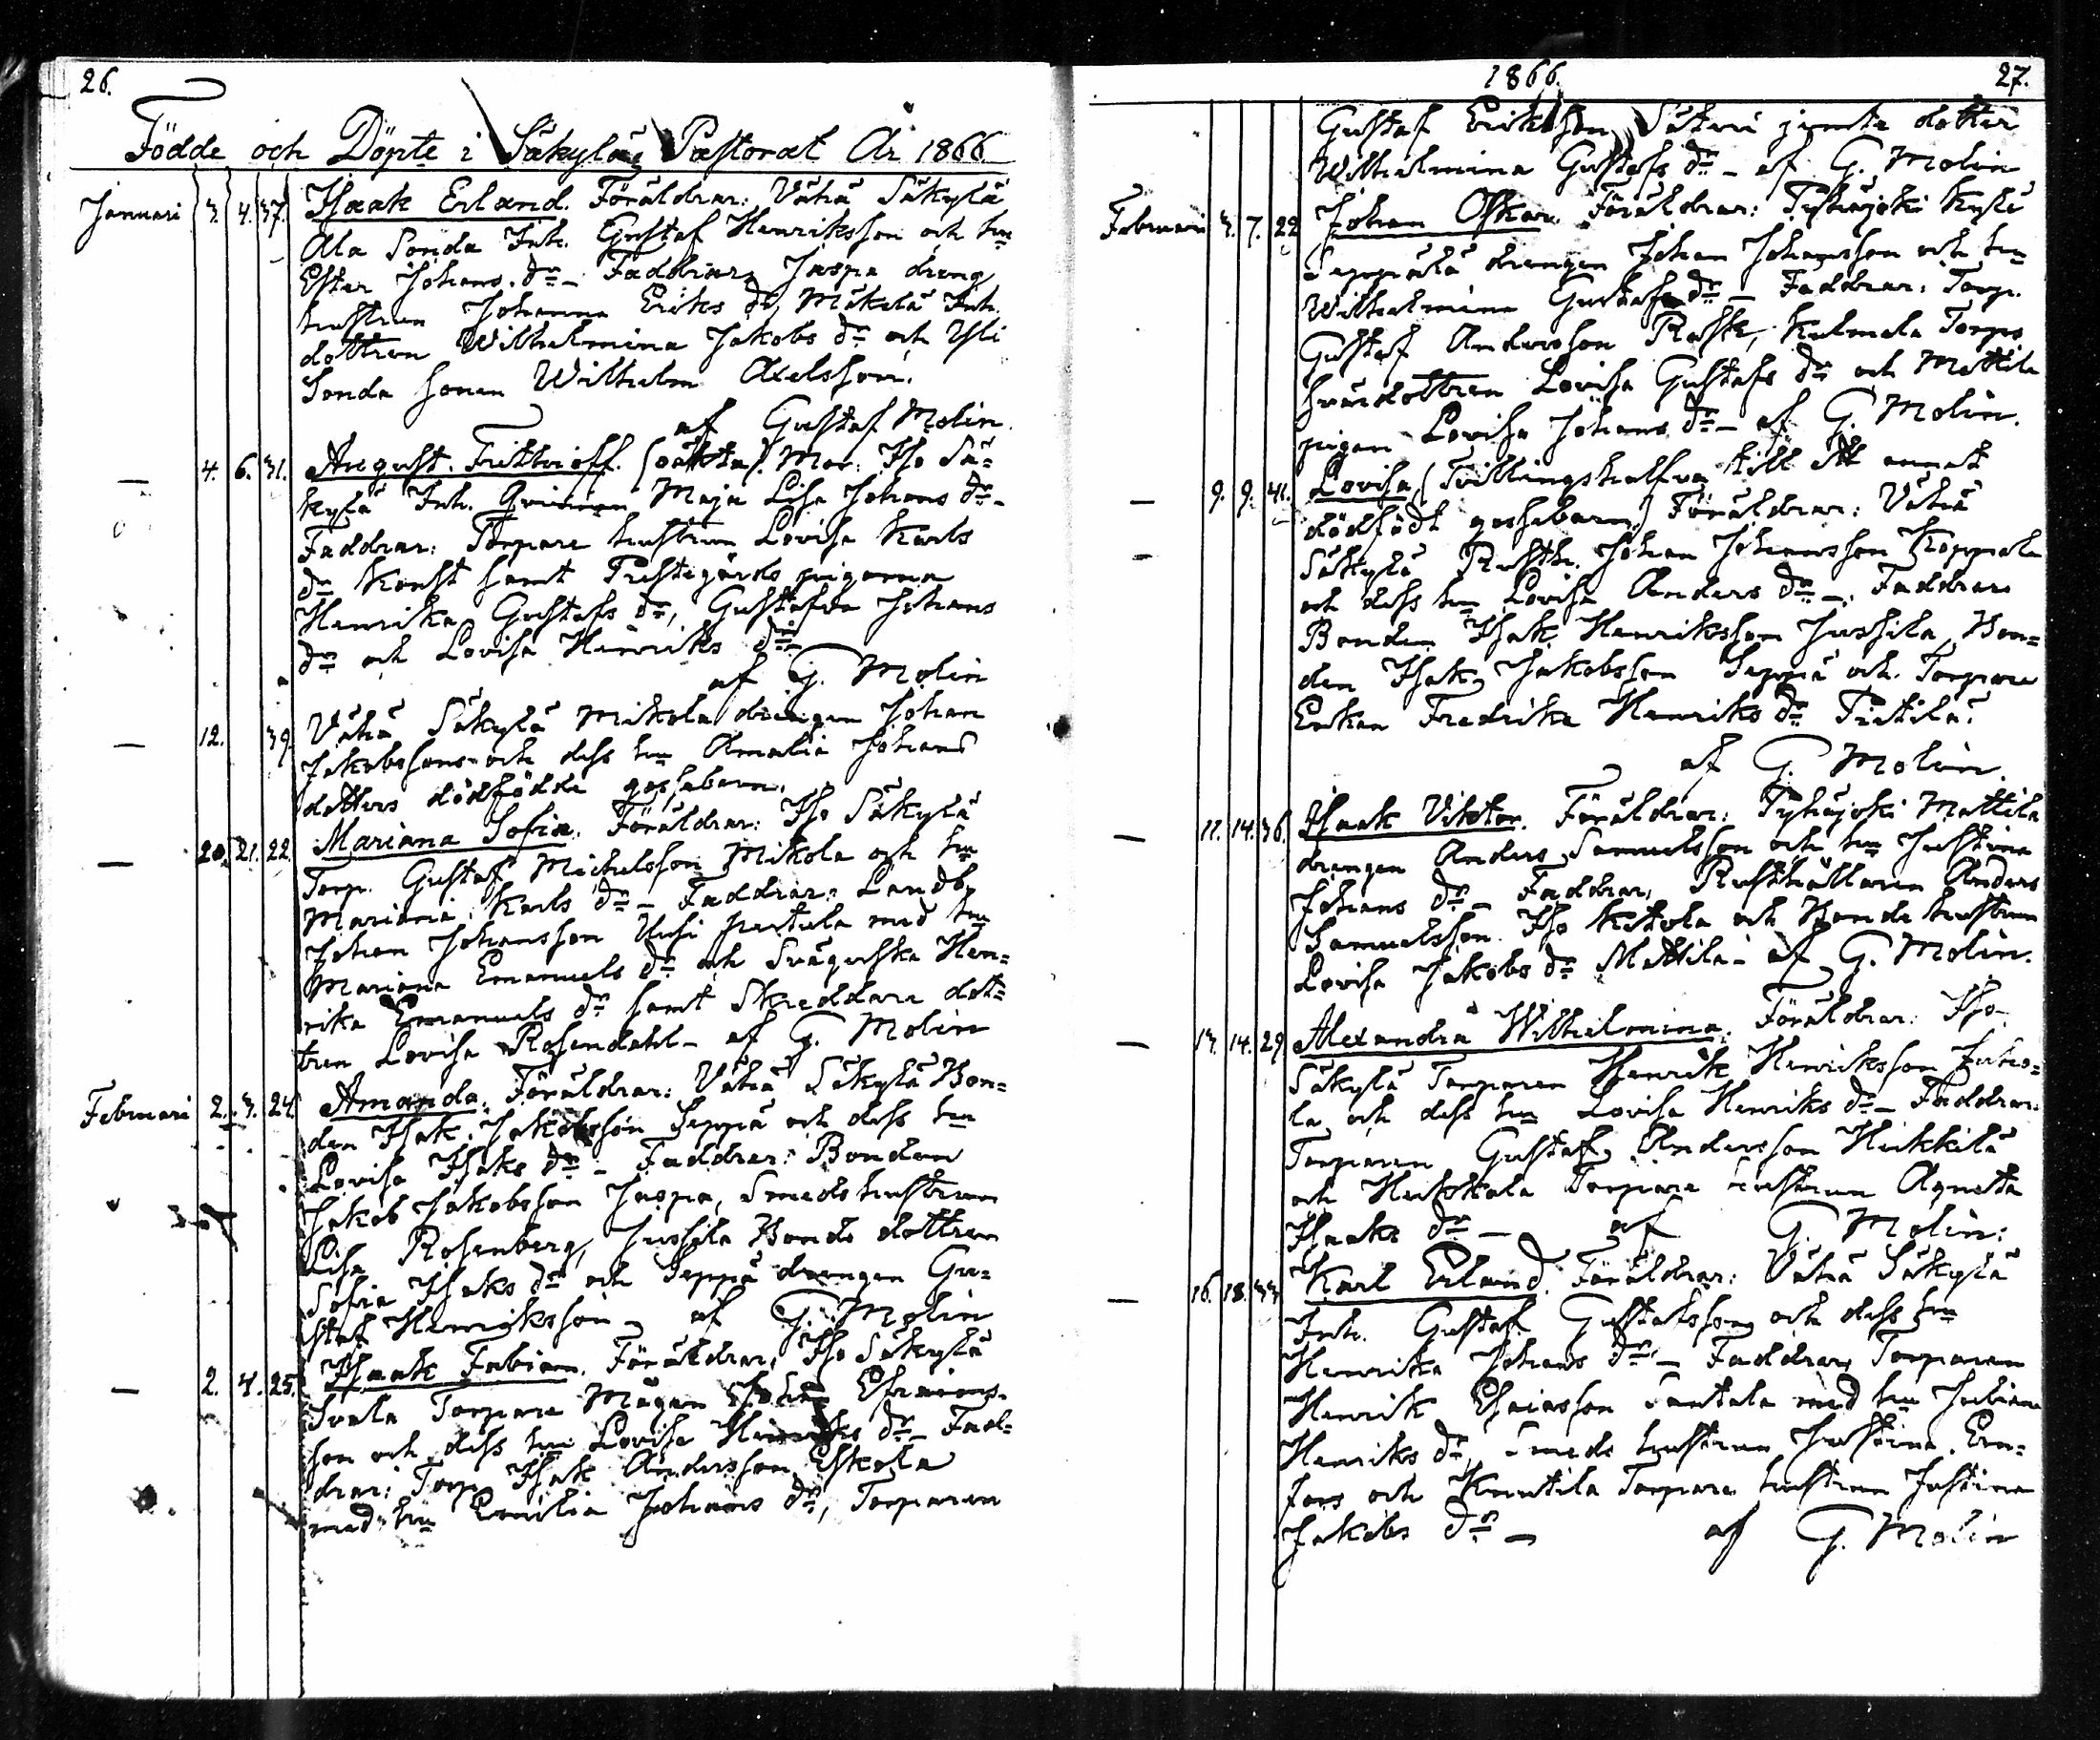 26.
Födde och Döpte i Säkylä Pastorat År 1866
Januari 3. 4. 37. Isaak Erland. Föräldrar: Vähä Säkylä
Ala Sonda Inh. Gustaf Henriksson och hu
Ester Johans. dr – Faddrar, Jaspa dreng
hustrun Johanna Eriks dr, Mikola Inh.
dottren Wilhelmina Jakobs dr och Yli
Sonda sonen Wilhelm Axelsson.
af Gustaf Molin.
— 4. 6. 31. August Frithioff. (oäkta). Mor: Iso Sä-
kylä Inh. qvinnan Maja Lisa Johans dr –
Faddrar: Torpare hustrun Lovisa Karls
dr Korst samt Prestegårds pigorna
Henrika Gustafs dr, Gustafva Johans
dr och Lovisa Henriks dr –
af G. Molin
— 12. 39. Vähä Säkylä Mikola drengen Johan
Jakobssons och dess hu Amalia Johans
dotters dödfödde gossebarn.
— 20. 21. 22. Mariana Sofia. Föräldrar: Iso Säkylä
Torp. Gustaf Michelsson Mikola och hu
Mariana Karls dr – Faddrar: Landb.
Johan Johansson Uusi pertula med hu
Mariana Emanuels dr och Svägerska Hen-
rika Emanuels dr samt Skreddare dot-
tren Lovisa Rosendahl – af G. Molin
Februari 2. 3. 24. Amanda. Föräldrar: Vähä Säkylä Bon-
den Isak Jakobsson Seppä och dess hu
Lovisa Isaks dr – Faddrar: Bonden
Jakob Jakobsson Jaspa, Smeds hustrun
Lisa Rosenberg, Jussila Bonde dottren
Sofia Isaks dr och Seppä drengen Gu-
staf Henriksson – af G. Molin
— 2. 4. 25. Isaak Fabian. Föräldrar, Iso Säkylä
Torpare Mågen Johan Efraims-
son och dess hu Lovisa Henriks dr – Fad-
drar: Torp. Isak Andersson Eskola
med hu Emilia Johans dr, Torparen
1866. 27.
Gustaf Eriksson Säteri jemte dotter
Wilhelmina Gustafs dr – af G. Molin
Februari 3. 7. 22. Johan Oskar. Föräldrar: Pyhäjoki Kylä
Seppälä drengen Johan Johansson och hu
Wilhelmina Gustafs dr – Faddrar: Torp.
Gustaf Andersson Raski, Kulmala Torps
svärdottren Lovisa Gustafs dr och Mattila
pigan Lovisa Johans dr – af G. Molin.
— 9. 9. 41. Lovisa (Tvillingshalfva till ett annat
dödfödt gossebarn) Föräldrar: Vähä
Säkylä Rusth. Johan Johansson
och dess hu Lovisa Anders dr – Faddrar
Bonden Isak Henriksson Jussila, Bon-
den Isak Jakobsson Seppä och Torpare
Enkan Fredrika Henriks dr Pietilä.
af G. Molin.
— 11. 14. 36. Isaak Viktor. Föräldrar: Pyhäjoki Mattila
drengen Anders Samuelsson och hu Justina
Johans dr – Faddrar, Rusthållaren Anders
Samuelsson Iso Ketola och Bonde hustrun
Lovisa Jakobs dr Mattila – af G. Molin.
— 13. 14. 29. Alexandra Wilhelmina. Föräldrar: Iso
Säkylä Torparen Henrik Henriksson Juho-
la och dess hu Lovisa Henriks dr – Faddrar:
Torparen Gustaf Andersson Heikkilä
och Torpare hustrun Agneta
Isaaks dr – af G. Molin:
— 16. 18. 33. Karl Erland. Föräldrar: Vähä Säkylä
Inh. Gustaf Gustafsson och dess hu
Henrika Johans dr – Faddrar, Torparen
Henrik Esaiasson Santala med hu
Henriks dr, Smeds hustrun Justina Ern-
fors och Knutila Torpare hustrun Justina
Jakobs dr – af G. Molin